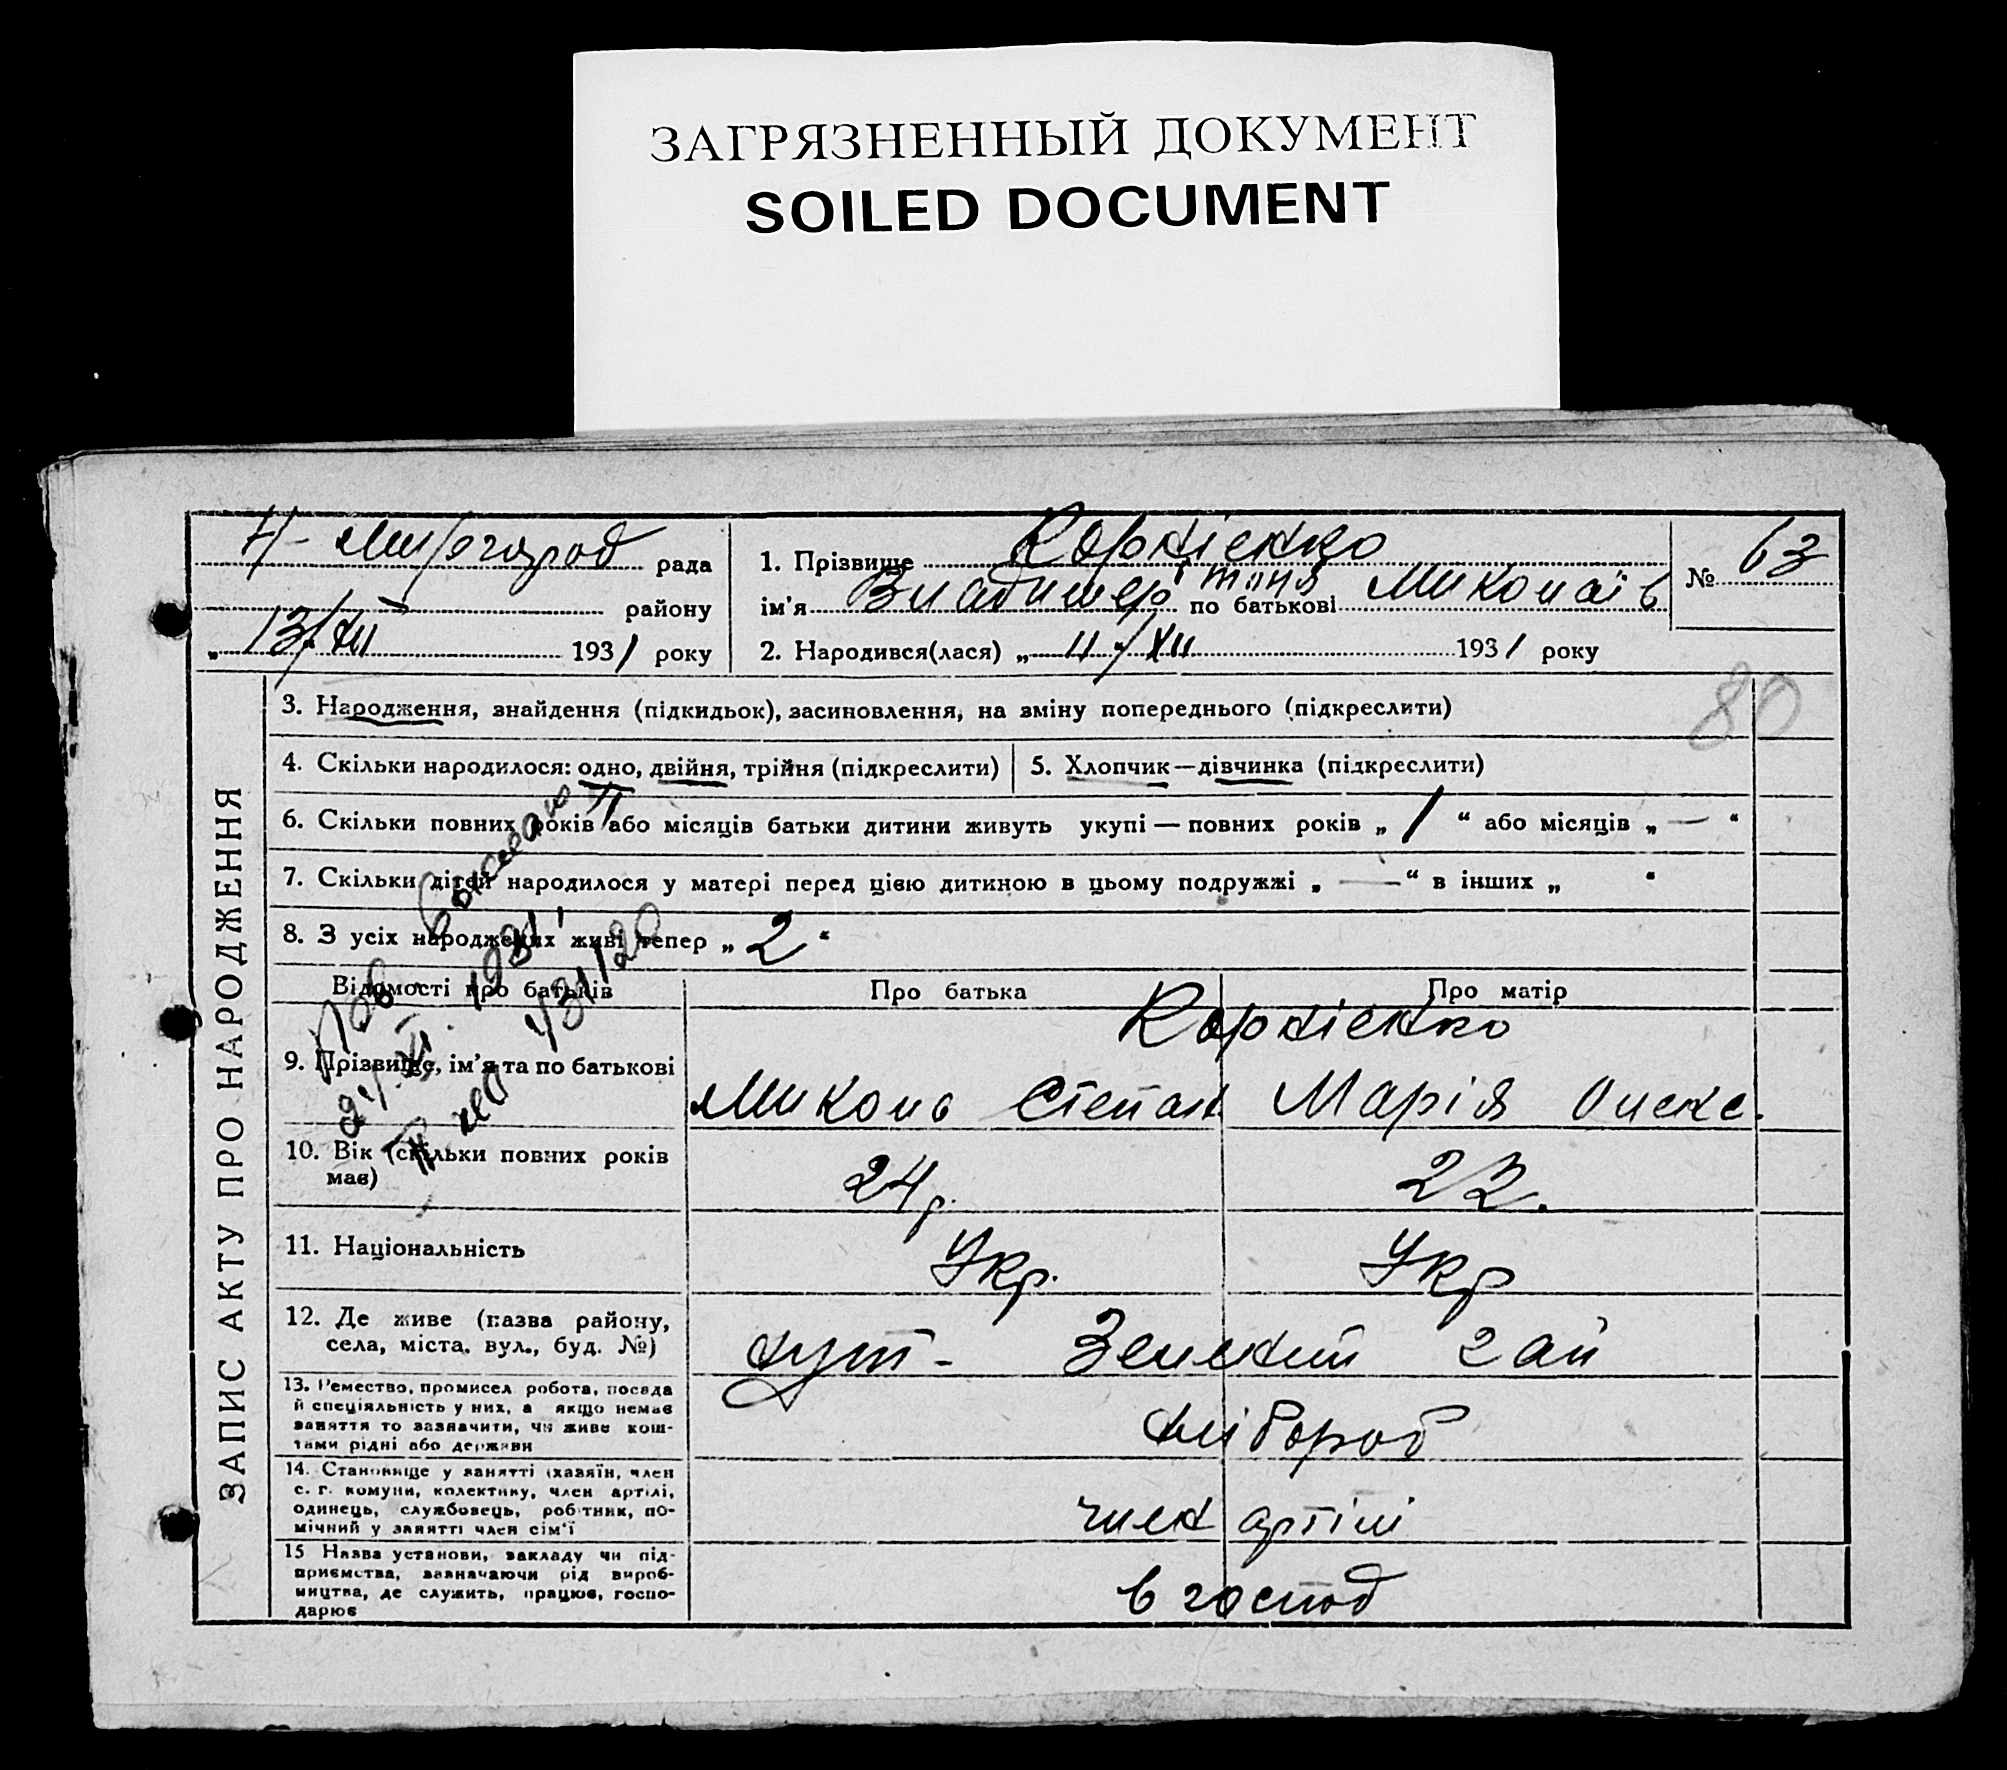 ЗАГРЯЗНЕННЫЙ ДОКУМЕНТ
SOILED DOCUMENT
Н-Миргород рада
району
„ 13/XII 1931 року
1. Прізвище Корнієнко
ім'я Владимер Таня по батькові Миколаїв
2. Народився(лася) „ 11/XII 1931 року
№ 63
80
ЗАПИС АКТУ ПРО НАРОДЖЕННЯ
3. Народження, знайдення (підкидьок), засиновлення, на зміну попереднього (підкреслити)
4. Скільки народилося: одно, двійня, трійня (підкреслити)
5. Хлопчик—дівчинка (підкреслити)
6. Скільки повних років або місяців батьки дитини живуть укупі — повних років „ 1 “ або місяців „ — “
7. Скільки дітей народилося у матері перед цією дитиною в цьому подружжі „ — “ в інших „ “
8. З усіх народжених живі тепер „ 2 “
1931
Відомості про батьків
Про батька
Про матір
Корнієнко
9. Прізвище, ім'я та по батькові
Микола Степан Марія Олекс.
10. Вік (скільки повних років
має)
24 р.
22.
11. Національність
Укр.
Укр
12. Де живе (назва району,
села, міста, вул., буд. №)
хут- Зелений гай
13. Ремество, промисел робота, посада
й спеціяльність у них, а якщо немає
заняття то зазначити, чи живе кош-
тами рідні або держави
хлібороб
14. Становище у занятті (хазяїн, член
с. г. комуни, колективу, член артілі,
одинець, службовець, робітник, по-
мічний у занятті член сім'ї
член артілі
15 Назва установи, закладу чи під-
приємства, зазначаючи рід вироб-
ництва, де служить, працює, госпо-
дарює
в господ